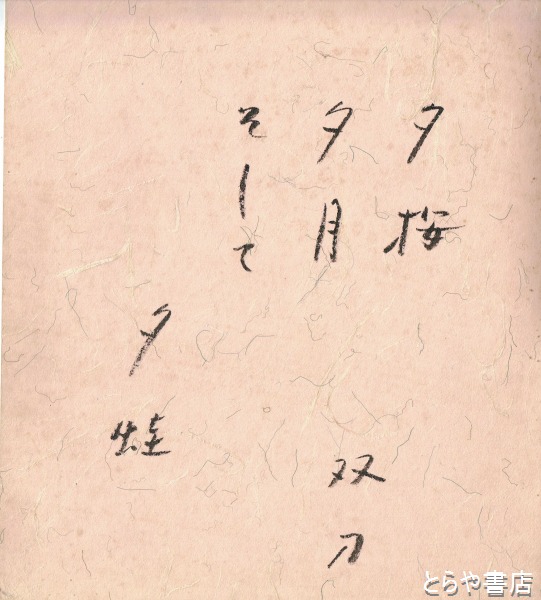 夕桜
夕月
そして
夕蛙
双刀
とらや書店